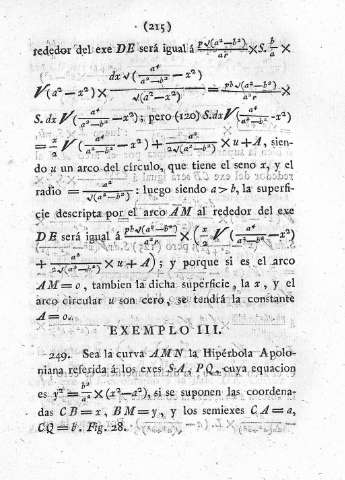 (215)
rededor del exe DE será igual á p√(a²−b²)/ar × S. b/a ×
√(a²−x²) × dx√(a⁴/(a²−b²) −x²)/√(a²−x²) = pb√(a²−b²)/a²r ×
S. dx √(a⁴/(a²−b²) −x²); pero (120) S.dx√(a⁴/(a²−b²) −x²)
= x/2 √(a⁴/(a²−b²) −x²) + a²/2√(a²−b²) × u+A, sien-
do u un arco del círculo, que tiene el seno x, y el
radio = a²/√(a²−b²) : luego siendo a>b, la superfi-
cie descripta por el arco AM al rededor del exe
DE será igual á pb√(a²−b²)/a²r × (x/2 √(a⁴/(a²−b²) −x²)
+ a²/2√(a²−b²) × u + A); y porque si es el arco
AM=0, tambien la dicha superficie, la x, y el
arco circular u son cero, se tendrá la constante
A=0.
EXEMPLO III.
249. Sea la curva AMN la Hipérbola Apolo-
niana referida á los exes SA, PQ, cuya equacion
es y²= b²/a² ×(x²−a²), si se suponen las coordena-
das CB=x, BM=y, y los semiexes CA=a,
CQ=b. Fig. 28.